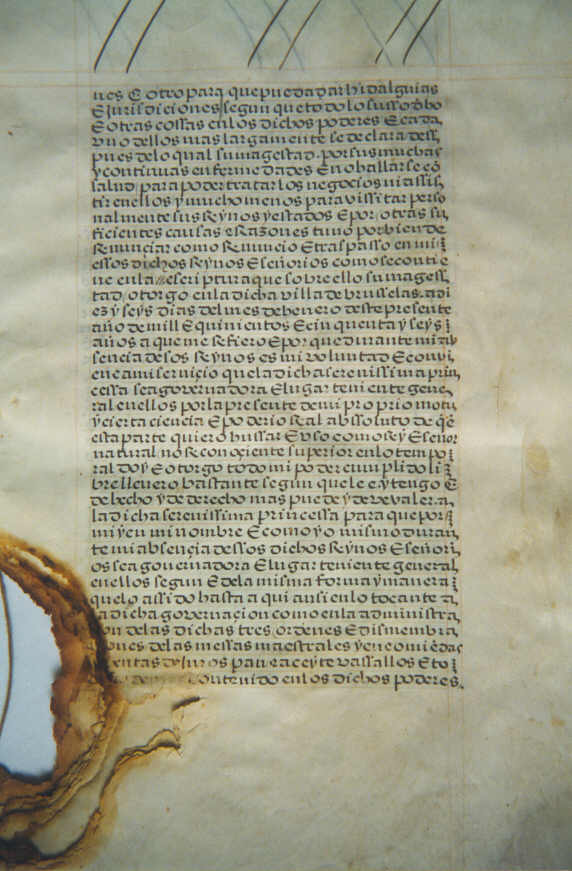 nes E otro para que pueda dar hidalguias
E Juris diciones segun que todo lo susso dho
E otras cossas en los dichos poderes E cada
vno dellos mas largamente se declara dess
pues de lo qual su magestad por sus muchas
y continuas enfermedades E no hallarse cō
salud para poder tratar los negocios ni assis
tir en ellos y mucho menos para vissitar perso
nalmente sus Reynos y estados E por otras su
ficientes causas e Razones tuuo por bien de
Renunciar como Renuncio E traspasso en mi
essos dichos Reynos E señorios como se contie
ne en la escriptura que sobre ello su magess
tad otorgo en la dicha villa de bruselas a di
ez y seys dias del mes de henero deste presente
año de mill E quinientos E cinquenta y seys
años a que me refiero E por que durante mi ab
sencia de sos Reynos es mi voluntad E convi
ene a mi seruiçio que la dicha serenissima prin
cessa sea governadora E lugar teniente gene
ral en ellos por la presente de mi proprio motu
y cierta ciencia E poderio Real absoluto de q̄
esta parte quiero hussar E vso como Rey E señor
natural no Reconoçiente superior en lo tempo
ral doy E otorgo todo mi poder cumplido li
bre llenero bastante segun que le e y tengo E
de hecho y de derecho mas puede y deve valer a
la dicha serenissima princessa para que por
mi y en mi nombre E como yo mismo duran
te mi absençia dessos dichos Reynos E señori
os sea governadora E lugar teniente general
en ellos segun E de la misma forma y manera
que lo assi do hasta a qui ansi en lo tocante a
la dicha governaçion como en la administra
on de las dichas tres ordenes E dismembra
ones de las messas maestrales y encomiēdas
entas de juros para e açeyte vassallos E to
contenido en los dichos poderes.